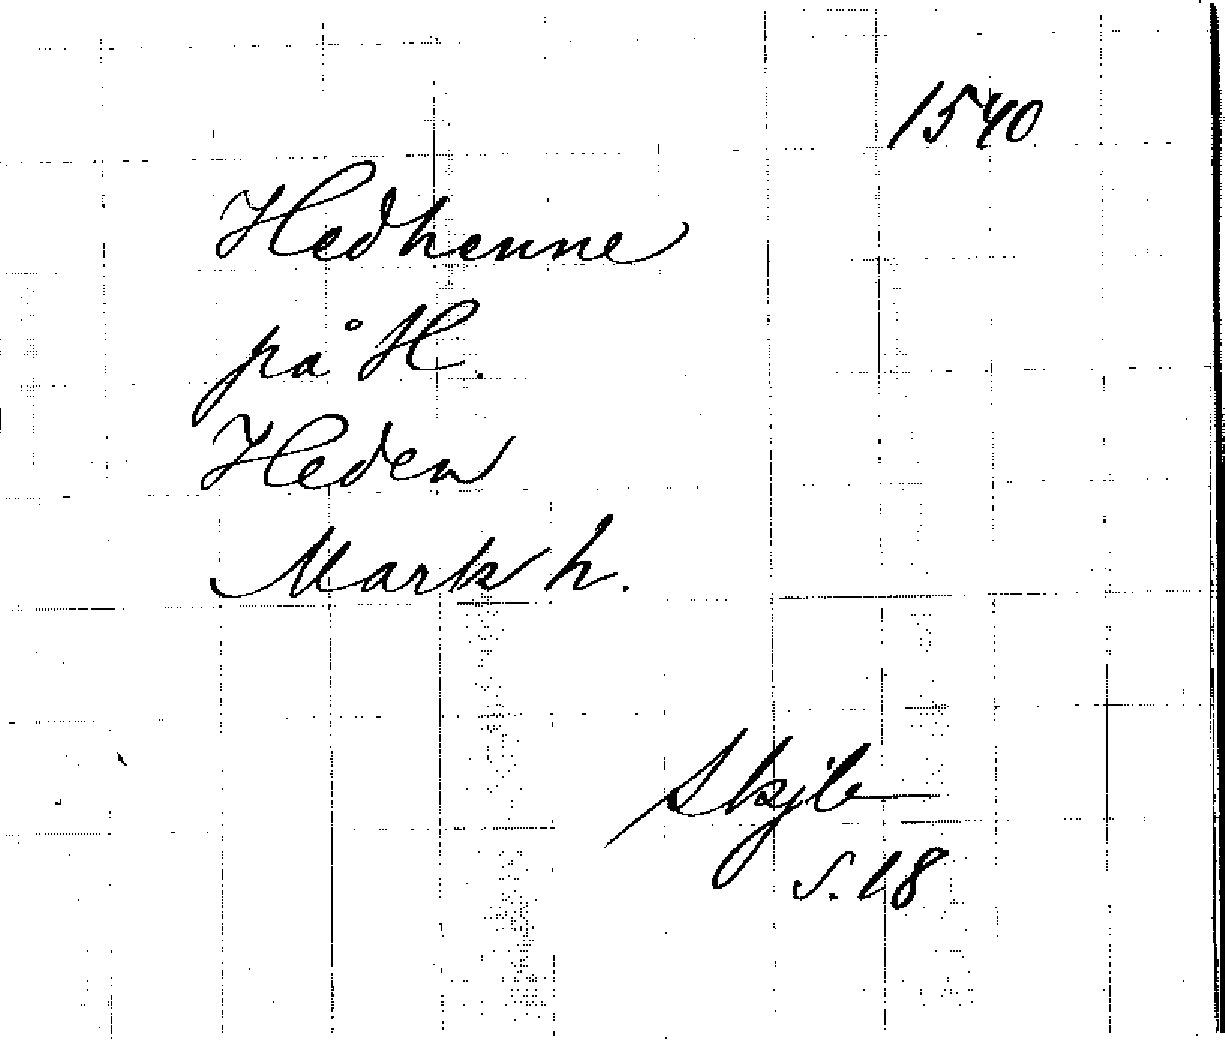 1540
Hedhenne
på H.
Heden
Mark h.
Skjb
S. 18